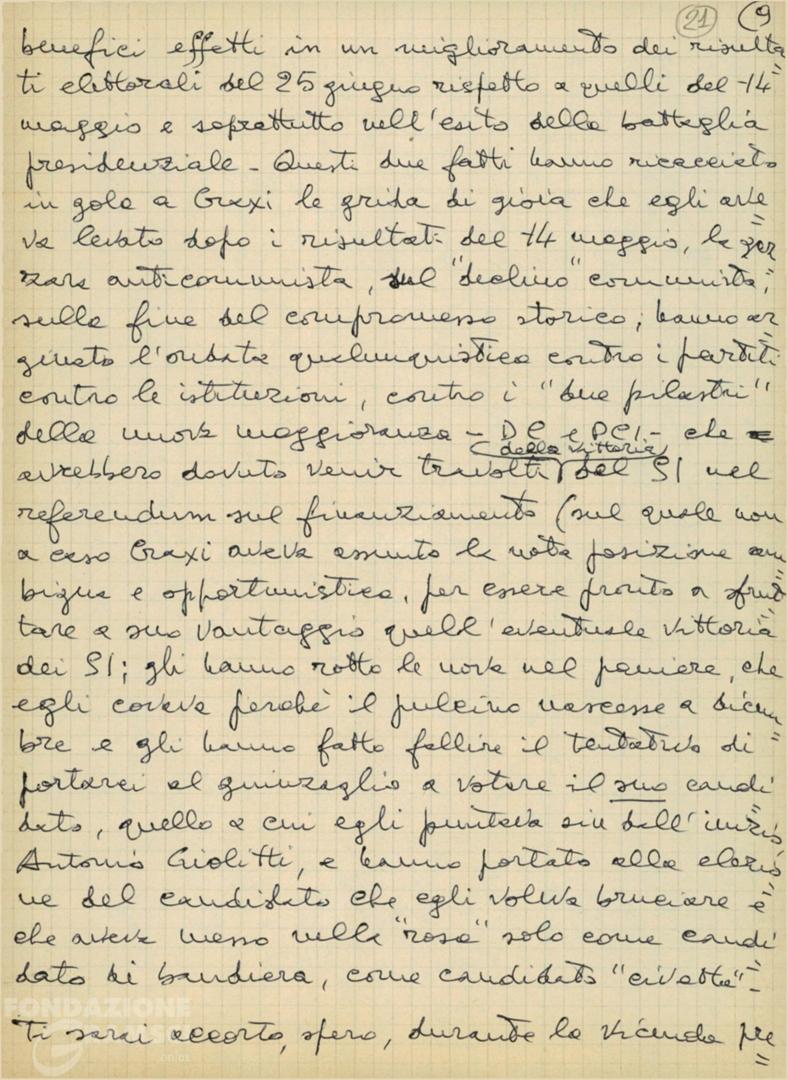 21 (9
benefici effetti in un miglioramento dei risulta=
ti elettorali del 25 giugno rispetto a quelli del 14
maggio e soprattutto nell'esito della battaglia
presidenziale - Questi due fatti hanno ricacciato
in gola a Craxi le grida di gioia che egli ave=
va levato dopo i risultati del 14 maggio, la gaz=
zara anticomunista, sul "declino" comunista,
sulla fine del compromesso storico; hanno ar=
ginato l'ondata qualunquistica contro i partiti
contro le istituzioni, contro i "due pilastri"
della nuova maggioranza - DC e PCI - che
avrebbero dovuto venir travolti dalla vittoria del SI nel
referendum sul finanziamento (sul quale non
a caso Craxi aveva assunto la nota posizione am=
bigua e opportunistica, per essere pronto a sfrut=
tare a suo vantaggio quell'eventuale vittoria
dei SI; gli hanno rotto le uova nel paniere, che
egli covava perchè il pulcino nascesse a dicem=
bre e gli hanno fatto fallire il tentativo di
portarci al guinzaglio a votare il suo candi=
dato, quello a cui egli puntava sin dall'inizio
Antonio Giolitti, e hanno portato alla elezio=
ne del candidato che egli voleva bruciare e
che aveva messo nella "rosa" solo come candi=
dato di bandiera, come candidato "civetta" -
Ti sarai accorto, spero, durante la vicenda pre=
FONDAZIONE